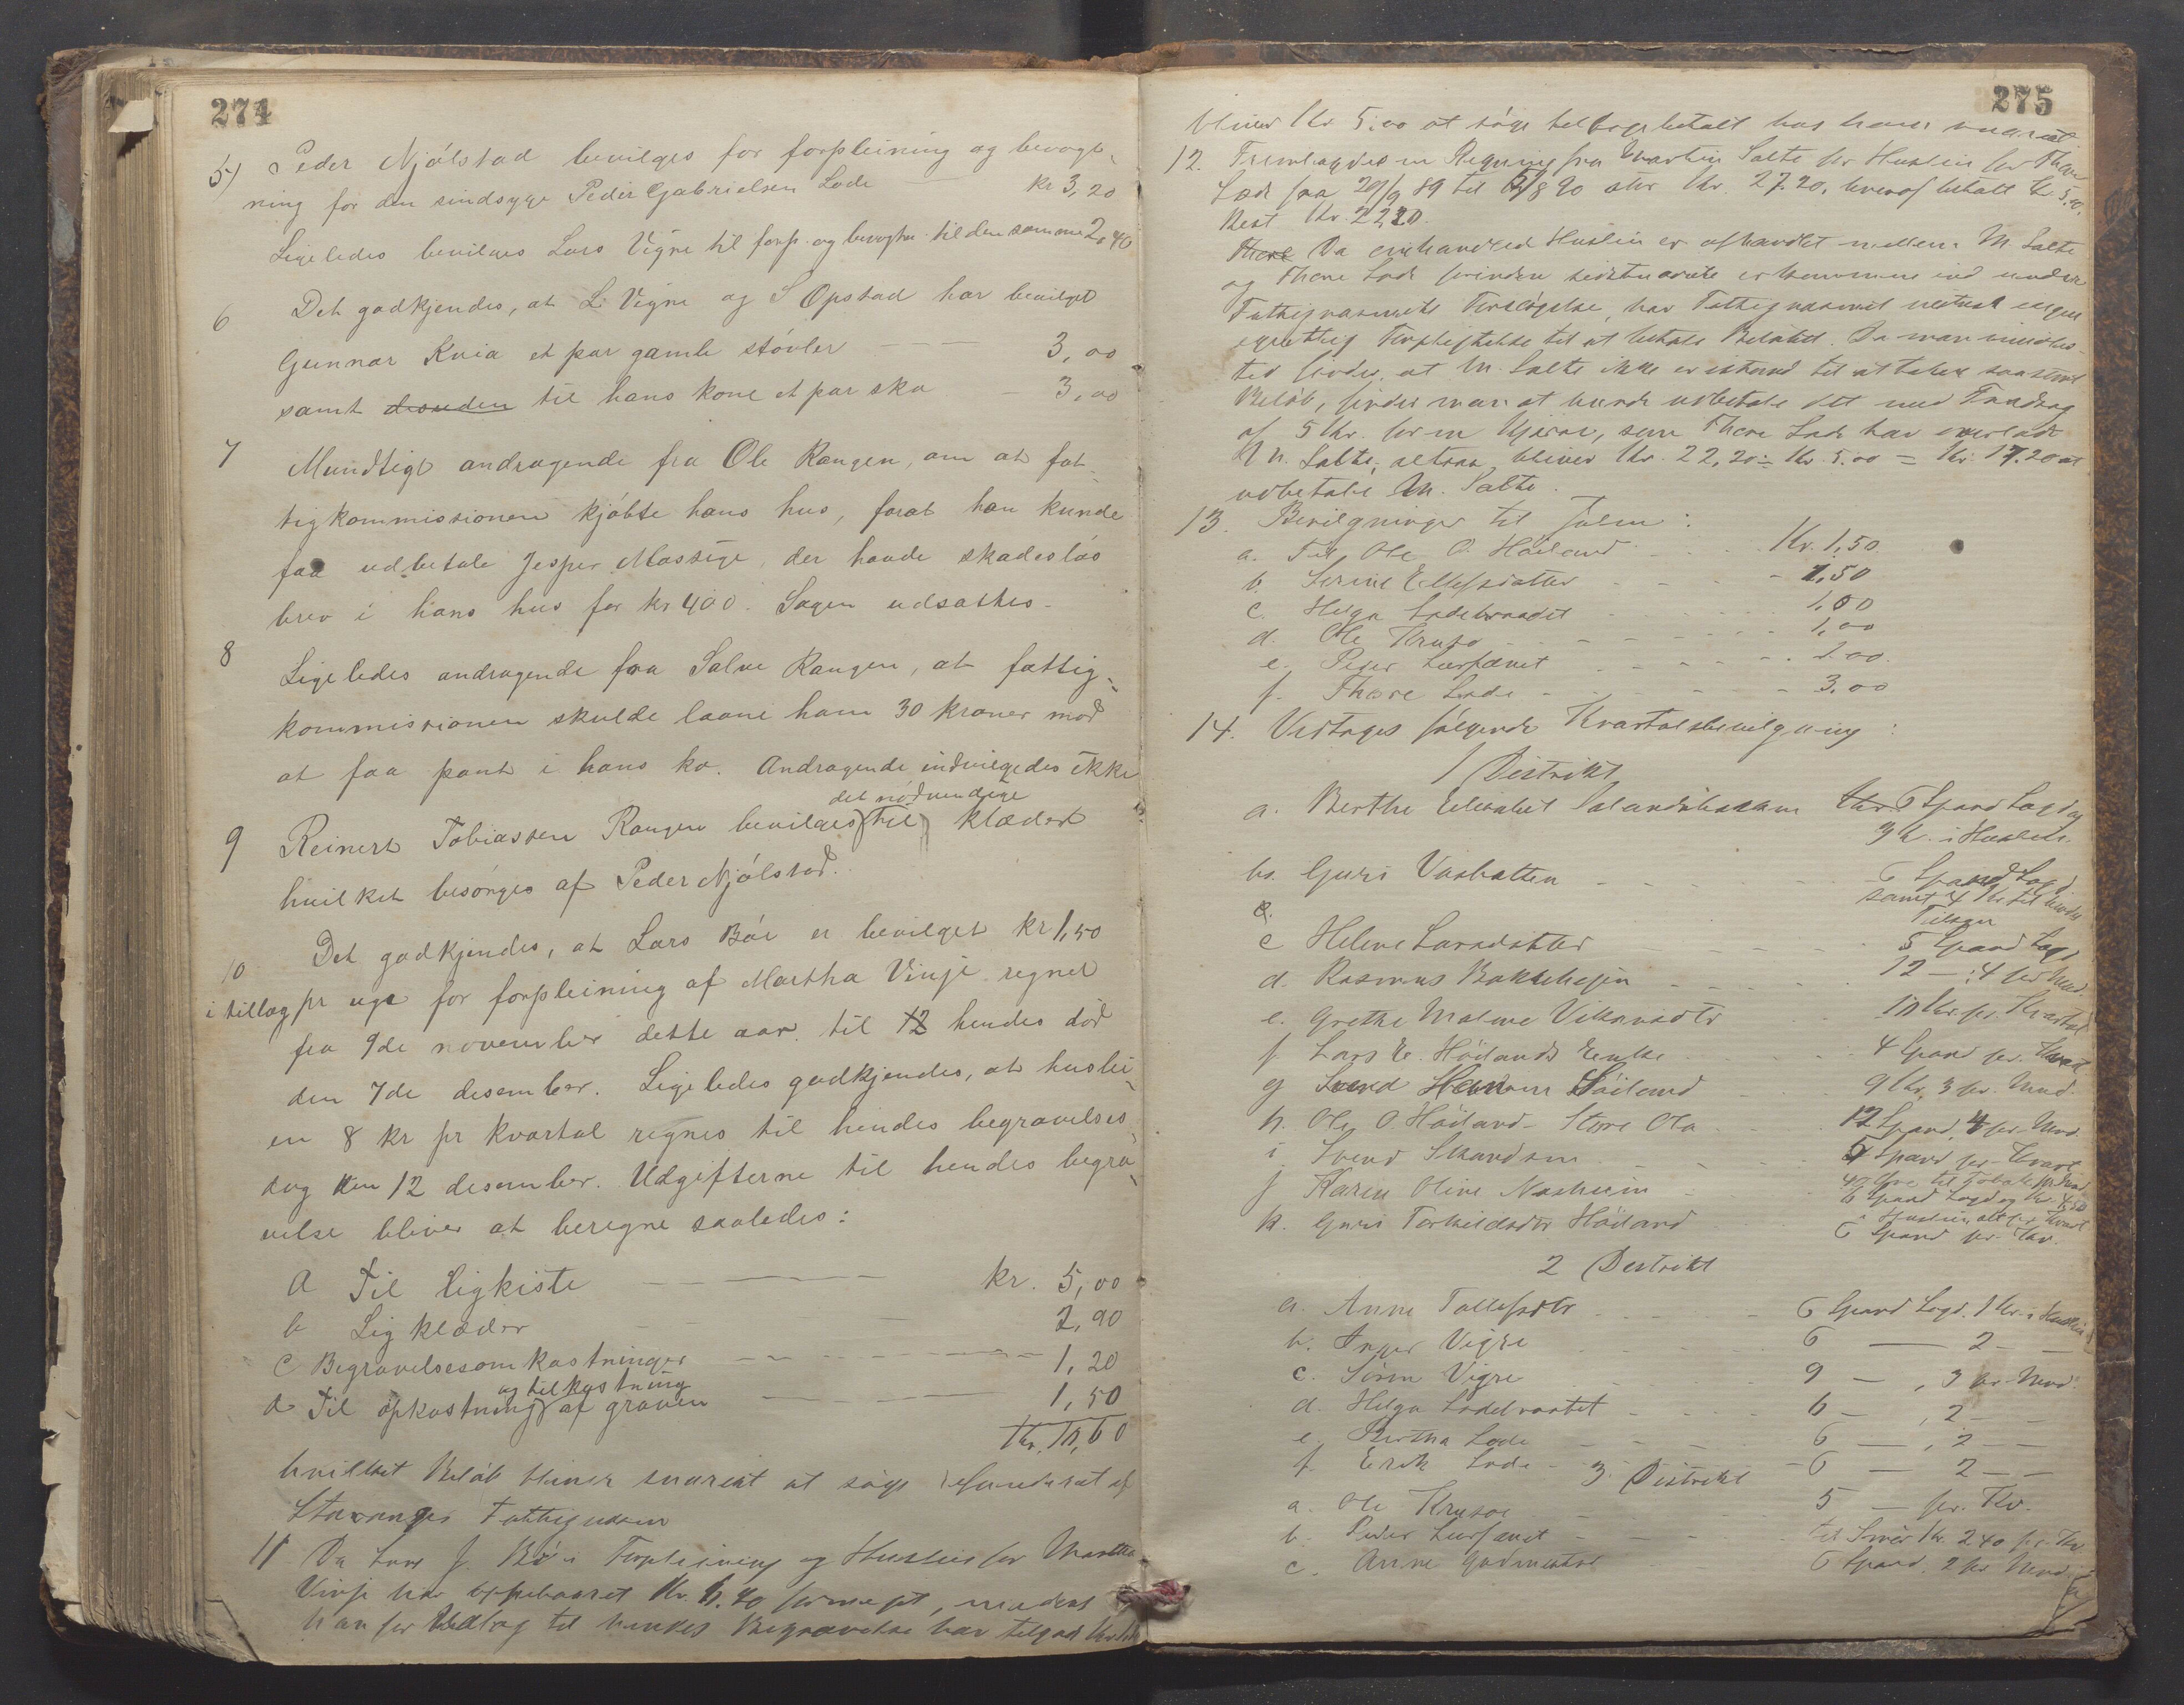 274
5) Peder Njølstad bevilges for forpleining og bevogt-
ning for den sindsyge Peder Gabrielsen Lode kr 3,20
Ligeledes bevilges Lars Vigre til forp. og bevogtn. til den samme 2,40
6 Det godkjendes, at L. Vigre og S Opstad har bevilget
Gunnar Kvia et par gamle støvler 3,00
samt desuden til hans kone et par sko 3,00
7 Mundtligt andragende fra Ole Rangen, om at fat-
tigkommissionen kjøbte hans hus, forat han kunde
faa udbetale Jesper Mossige, der havde skadesløs
brev i hans hus for kr 400. Sagen udsattes.
8 Ligeledes andragende fra Salve Rangen, at fattig-
kommissionen skulde laane ham 30 kroner mod
at faa pant i hans ko. Andragende indvilgedes ikke
det nødvendige
9 Reinert Tobiassen Rangen bevilges til klæder
hvilket besørges af Peder Njølstad.
10 Det godkjendes, at Lars Bøe er bevilget kr 1,50
i tillæg pr uge for forpleining af Martha Vinje regnet
fra 9de november dette aar til 12 hendes død
den 7de desember. Ligeledes godkjendes, at huslei-
en 8 kr pr kvartal regnes til hendes begravelses-
dag den 12 desember. Udgifterne til hendes begra-
velse bliver at beregne saaledes:
a Til ligkiste kr. 5,00
b Ligklæder 2,90
c Begravelsesomkostninger 1,20
og tilkastning
d Til opkastning af graven 1,50
Kr. 10,60
hvilket Beløb bliver snarest at søge refunderet af
Stavanger Fattigvæsen
11 Da Lars J. Bø i Forpleining og Husleie for Martha
Vinje har oppebaaret Kr. 6.40 formeget, medens
han for Udlæg til hendes Begravelse har tilgode Kr
275
bliver Kr 5.00 at søge tilbagebetalt hos ham snarest.
12. Fremlagdes en Regning fra Martin Salte for Husleie for Thore
Lode fra 20/9 89 til 8 90 stor Kr. 27.20, hvoraf betalt Kr. 5,00.
Rest Kr. 22.20.
Thore Da omhandled Husleie er afhandlet mellem M. Salte
og Thore Lode forinden sidstnævnte er kommen ind under
Fattigvæsenets Forsørgelse, har Fattigvæsenet neppe nogen
egentlig Forpligtelse til at betale Beløbet. Da man imidler-
tid finder, at M. Salte ikke er istand til at tabe saa stort
Beløb, finder man at burde udbetale det med Fradrag
af 5 Kr. for en Kjærre, som Thore Lode har overladt
M. Salte, altsaa bliver Kr. 22,20 ÷ Kr. 5.00 = Kr. 17.20 at
udbetale M. Salte.
13. Bevilgninger til Julen:
a. Til Ole O. Høiland Kr. 1,50
b. Serine Ellefsdatter 1,50
c. Helga Lodebraadet 1,00
d. Ole Krusø 1,00
e. Peder 2.00
f. Thore Lode 3.00
14. Vedtages følgende Kvartalsbevilgning:
1 Distrikt
a. Berthe Elisabet Kr 6 Spand Lagd og
3 K. i Husleie.
b. Guri Vasbakken 6 Spand Lagd.
samt 4 Kr til hendes
c.
c Helene Larsdatter 5 Spand Lagd
d. Rasmus Bakkehejen 12 — : 4 per Mnd.
e. Grethe Malene 10 Kr. pr. Kvartal
f. Lars E. Høilands Enke 4 Spand pr. Kvart
g Svend Høiland 9 Kr, 3 pr. Mnd.
h. Ole O. Høiland - Store Ola 12 Spand, 4 pr. Mnd.
i Svend 5 Spand pr. Kvart
j Karen Oline Nærheim 6 Spand Lagd og Kr. 4.50
i Husleie, alt pr. Kvart
k. Guri Torkildsdtr Høiland 6 Spand pr. Kv.
2 Distrikt
a. Anne Tollefsdtr 6 Spand Lagd. 1 Kr. i Husleie
b. Inger Vigre 6 — 2 —
c. Søren Vigre 9 — , 3 pr Mnd.
d. Helga Lodebraatet 6 — , 2 —
e. Bertha Lode 6 — , 2 —
f. Erik Lode 6 — 2 —
3. Distrikt
a. Ole Krusøe 5 — pr. Kv.
b. Peder til Smør Kr. 2 40 pr. Kv
c. Anne 6 Spand, 2 pr Mnd.